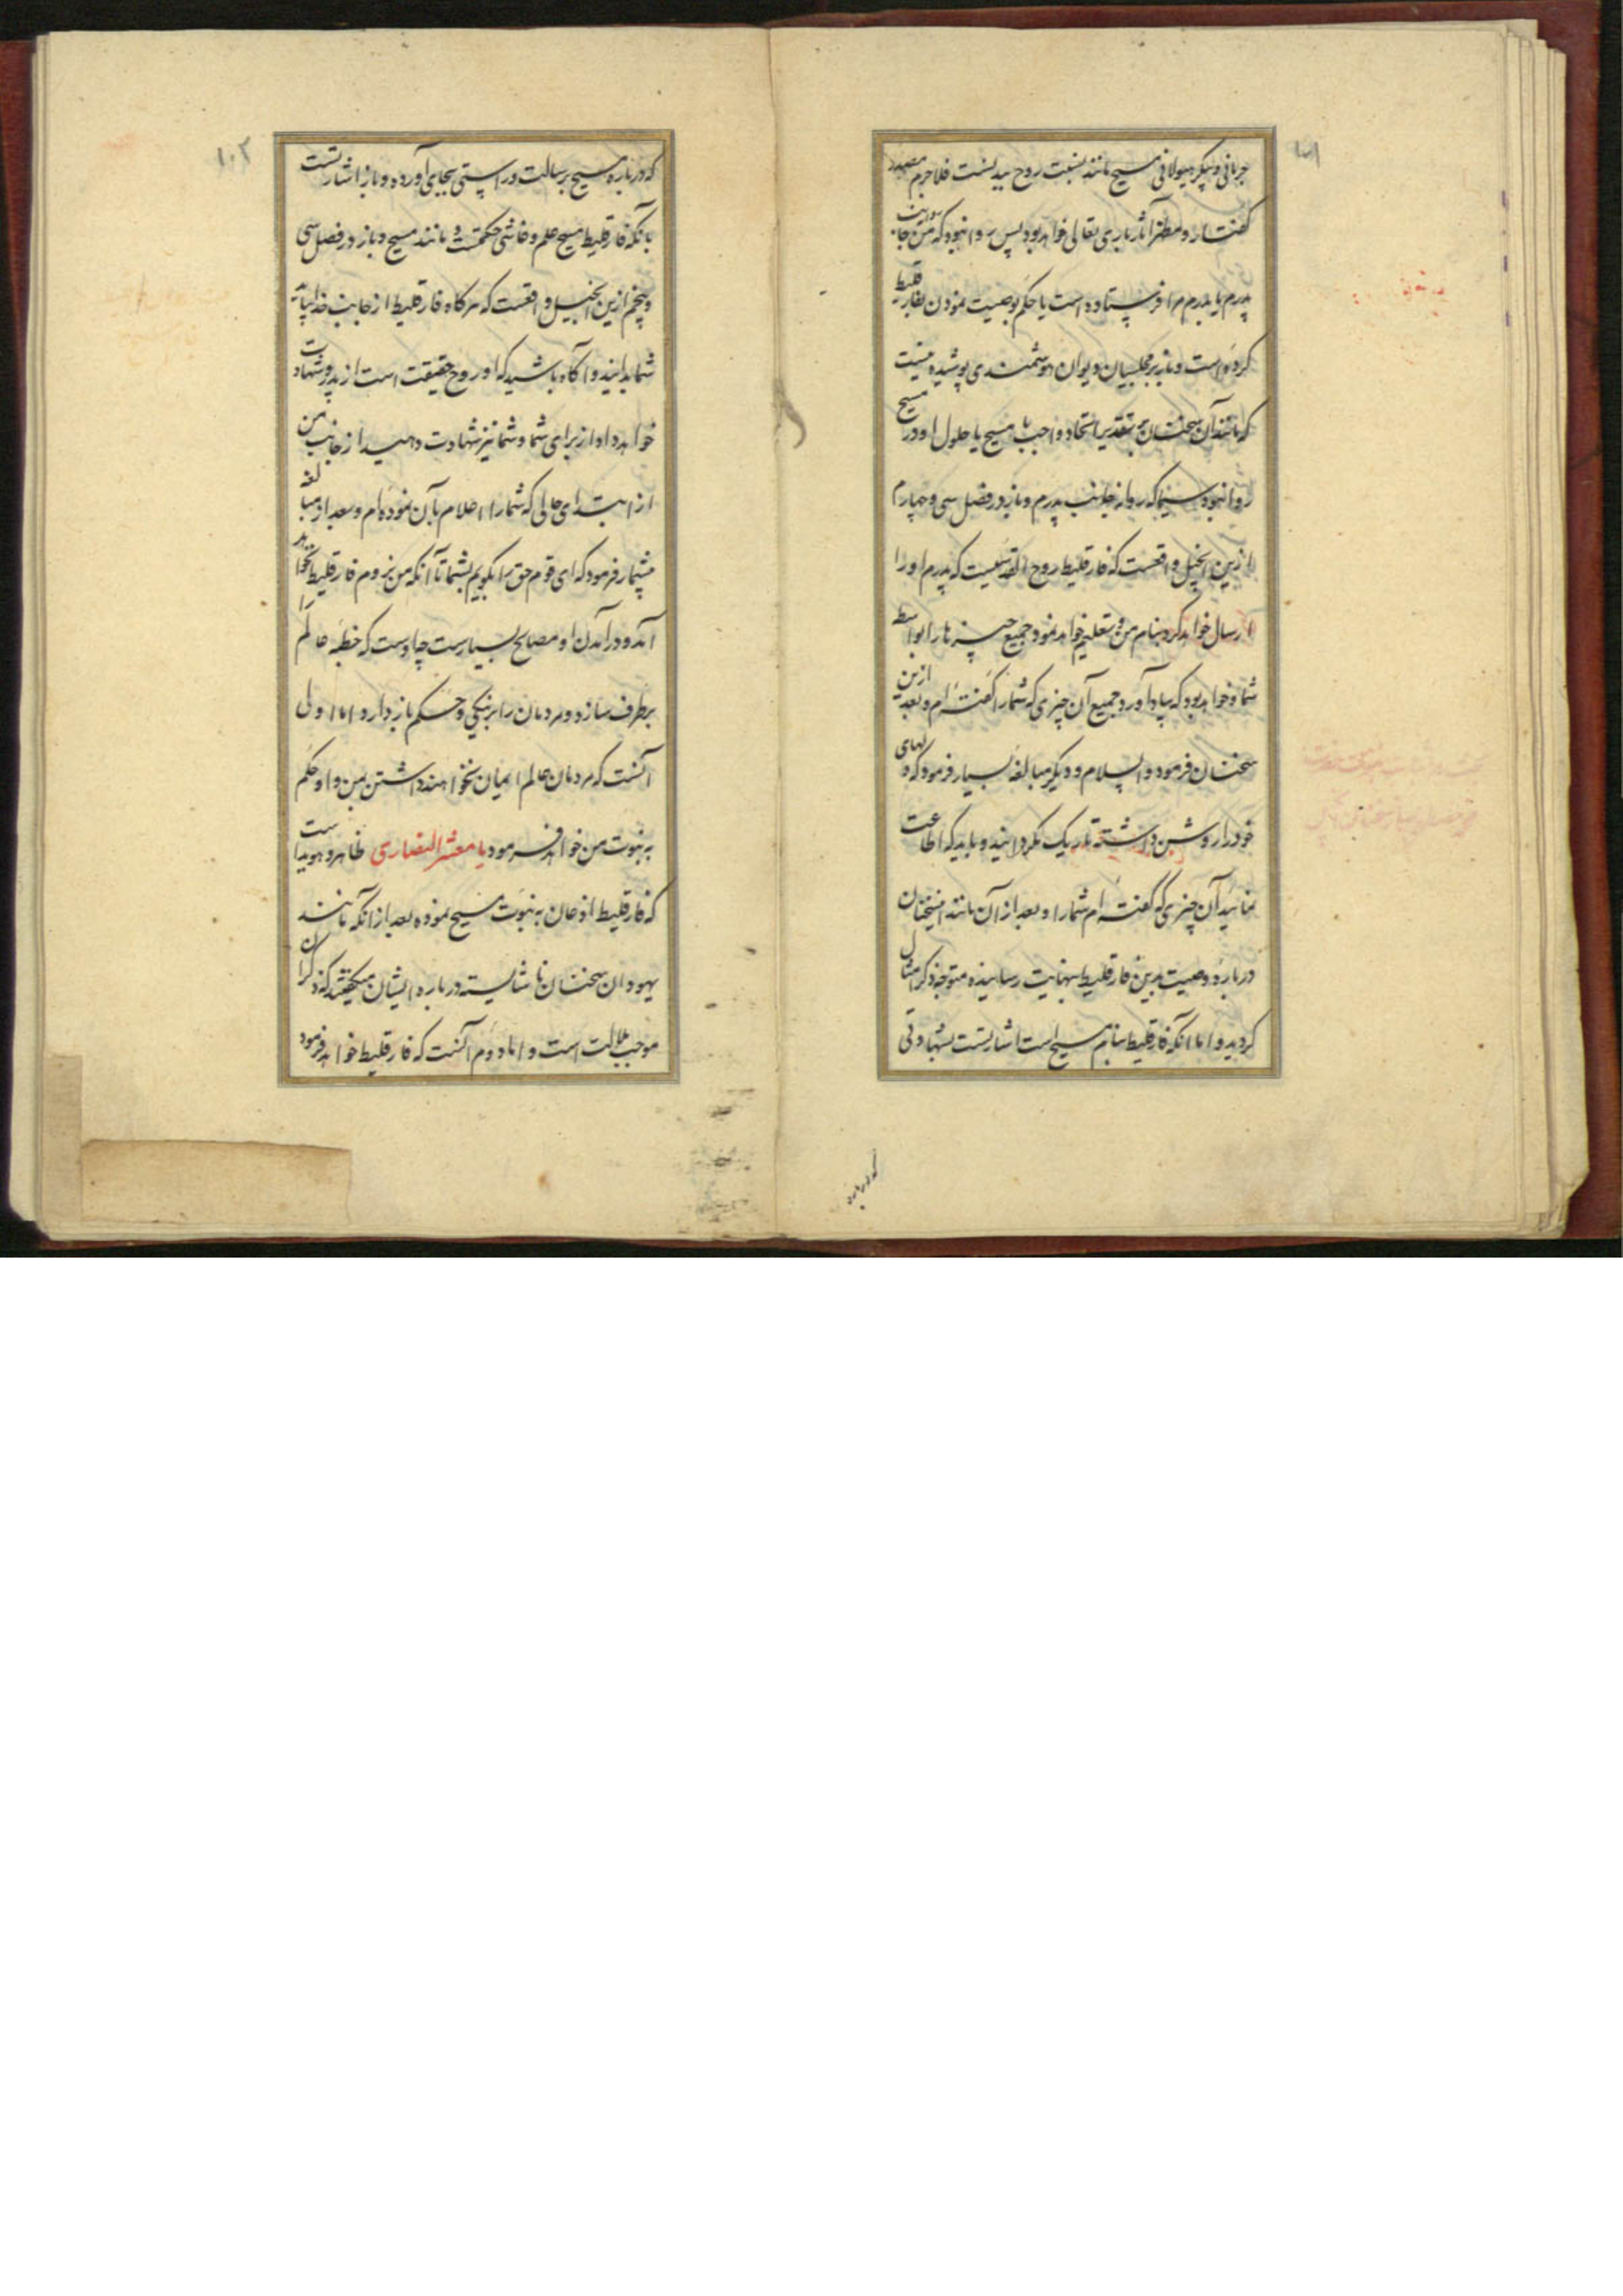 جرمانی و پیکر هیولانی مسیح مانند نسبت روح ببدنست فلاجرم مصدر
گفتار و مظهر آثار باری تعالی خواهد بود پس روا نبود که من جانب
پدرم یا پدرم مرا فرستاده است یا حکم بوصیت نمودن بفارقلیط
کرده است و نیز بر مجلسیان دیوان هوشمندی پوشیده نیست
که مانند آن سخنان بر تقدیر اتحاد واجب با مسیح یا حلول او در مسیح
روا نبود سیما که روانه جانب پدرم و نیز در فصل سی و چهارم
ازین انجیل واقعست که فارقلیط روح القدسیست که پدرم او را
ارسال خواهد کرد بنام من و تعلیم خواهد نمود جمیع چیزها را بواسطه
شما و خواهد بود که بیاد آورد جمیع آن چیزی که شما را گفته‌ام و بعد ازین
سخنان فرمود والسلام و دیگر مبالغه بسیار فرمود که دلهای
خود را روشن داشته تاریک نگردانید و باید که اطاعت
نمائید آن چیزی که گفته‌ام شما را و بعد از آن مانند اینسخنان
درباره وصیت بدین فارقلیط بنهایت رسانیده متوجه ذکر امثال
گردید و اما آنکه فارقلیط بنام مسیح است اشارتست بشهادتی
که درباره
۱۰۲
که درباره مسیح برسالت و راستی بجای آورده و باز اشارتست
بانکه فارقلیط مسیح علم و فاشی حکمتست و مانند مسیح و باز در فصل سی
و پنجم ازین انجیل واقعست که هرگاه فارقلیط از جانب خدا بیاید
شما بدانید و آگاه باشید که او روح حقیقت است از پدر و شهادت
خواهد داد او از برای شما و شما نیز شهادت دهید از جانب من
از ابتدای حالی که شما را اعلام بآن نموده‌ام و بعد از مبالغه
بیشمار فرمود که ای قوم حق را بگویم بشما تا آنکه من نروم فارقلیط نخواهد
آمد و در آمدن او مصالح بسیارست چه اوست که خطیه عالم را
برطرف سازد و مردمان را بر نیکی و حکم باز دارد اما اولی
آنست که مردمان عالم ایمان نخواهند داشتن بمن و او حکم
به نبوت من خواهد فرمود یا معشر النصاری ظاهر و هویداست
که فارقلیط اذعان به نبوت مسیح نموده بعد از آنکه مانند
یهودان سخنان ناشایسته درباره ایشان میگفتند که ذکر آن
موجب ملالت است و اما دوم آنست که فارقلیط خواهد فرمود